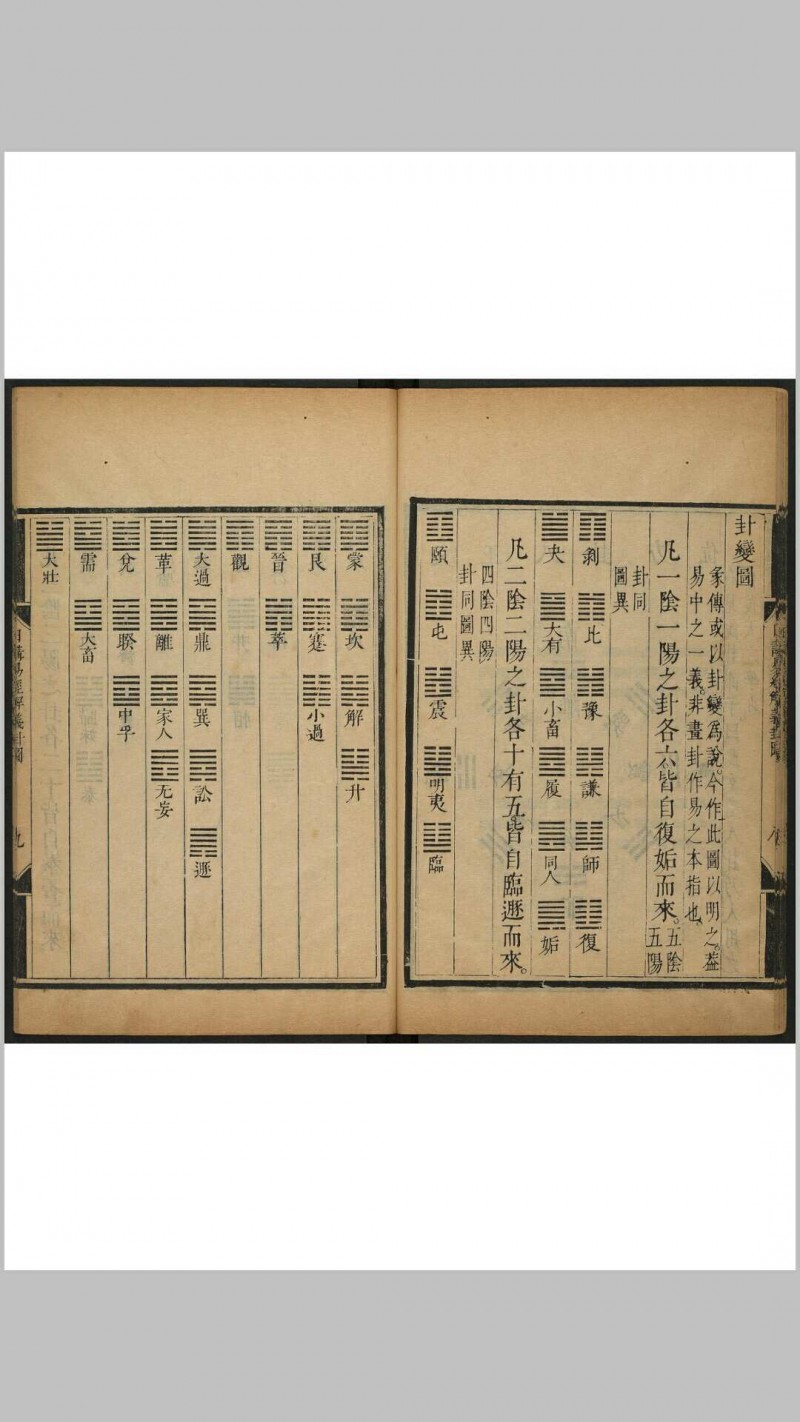 卦變圖
彖傳或以卦變爲說。今作此圖以明之。蓋
易中之一義。非畫卦作易之本指也。
凡一陰一陽之卦各六。皆自復姤而來。五陰
五陽
卦同
圖異
剥 比 豫 謙 師 復
夬 大有 小畜 履 同人 姤
凡二陰二陽之卦各十有五。皆自臨遯而來。
四陰四陽
卦同圖異
頤 屯 震 明夷 臨
蒙 坎 解 升
艮 蹇 小過
晉 萃
觀
大過 鼎 巽 訟 遯
革 離 家人 无妄
兌 睽 中孚
需 大畜
大壯
日講易經解義卦圖
九